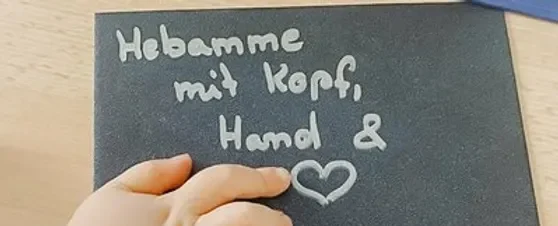 Hebamme
mit Kopf,
Hand &
♡